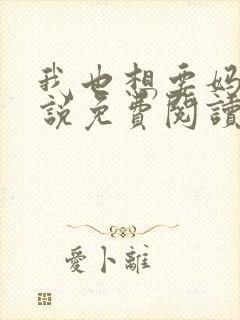 我也想要妈
說免費閱讀
愛卜離